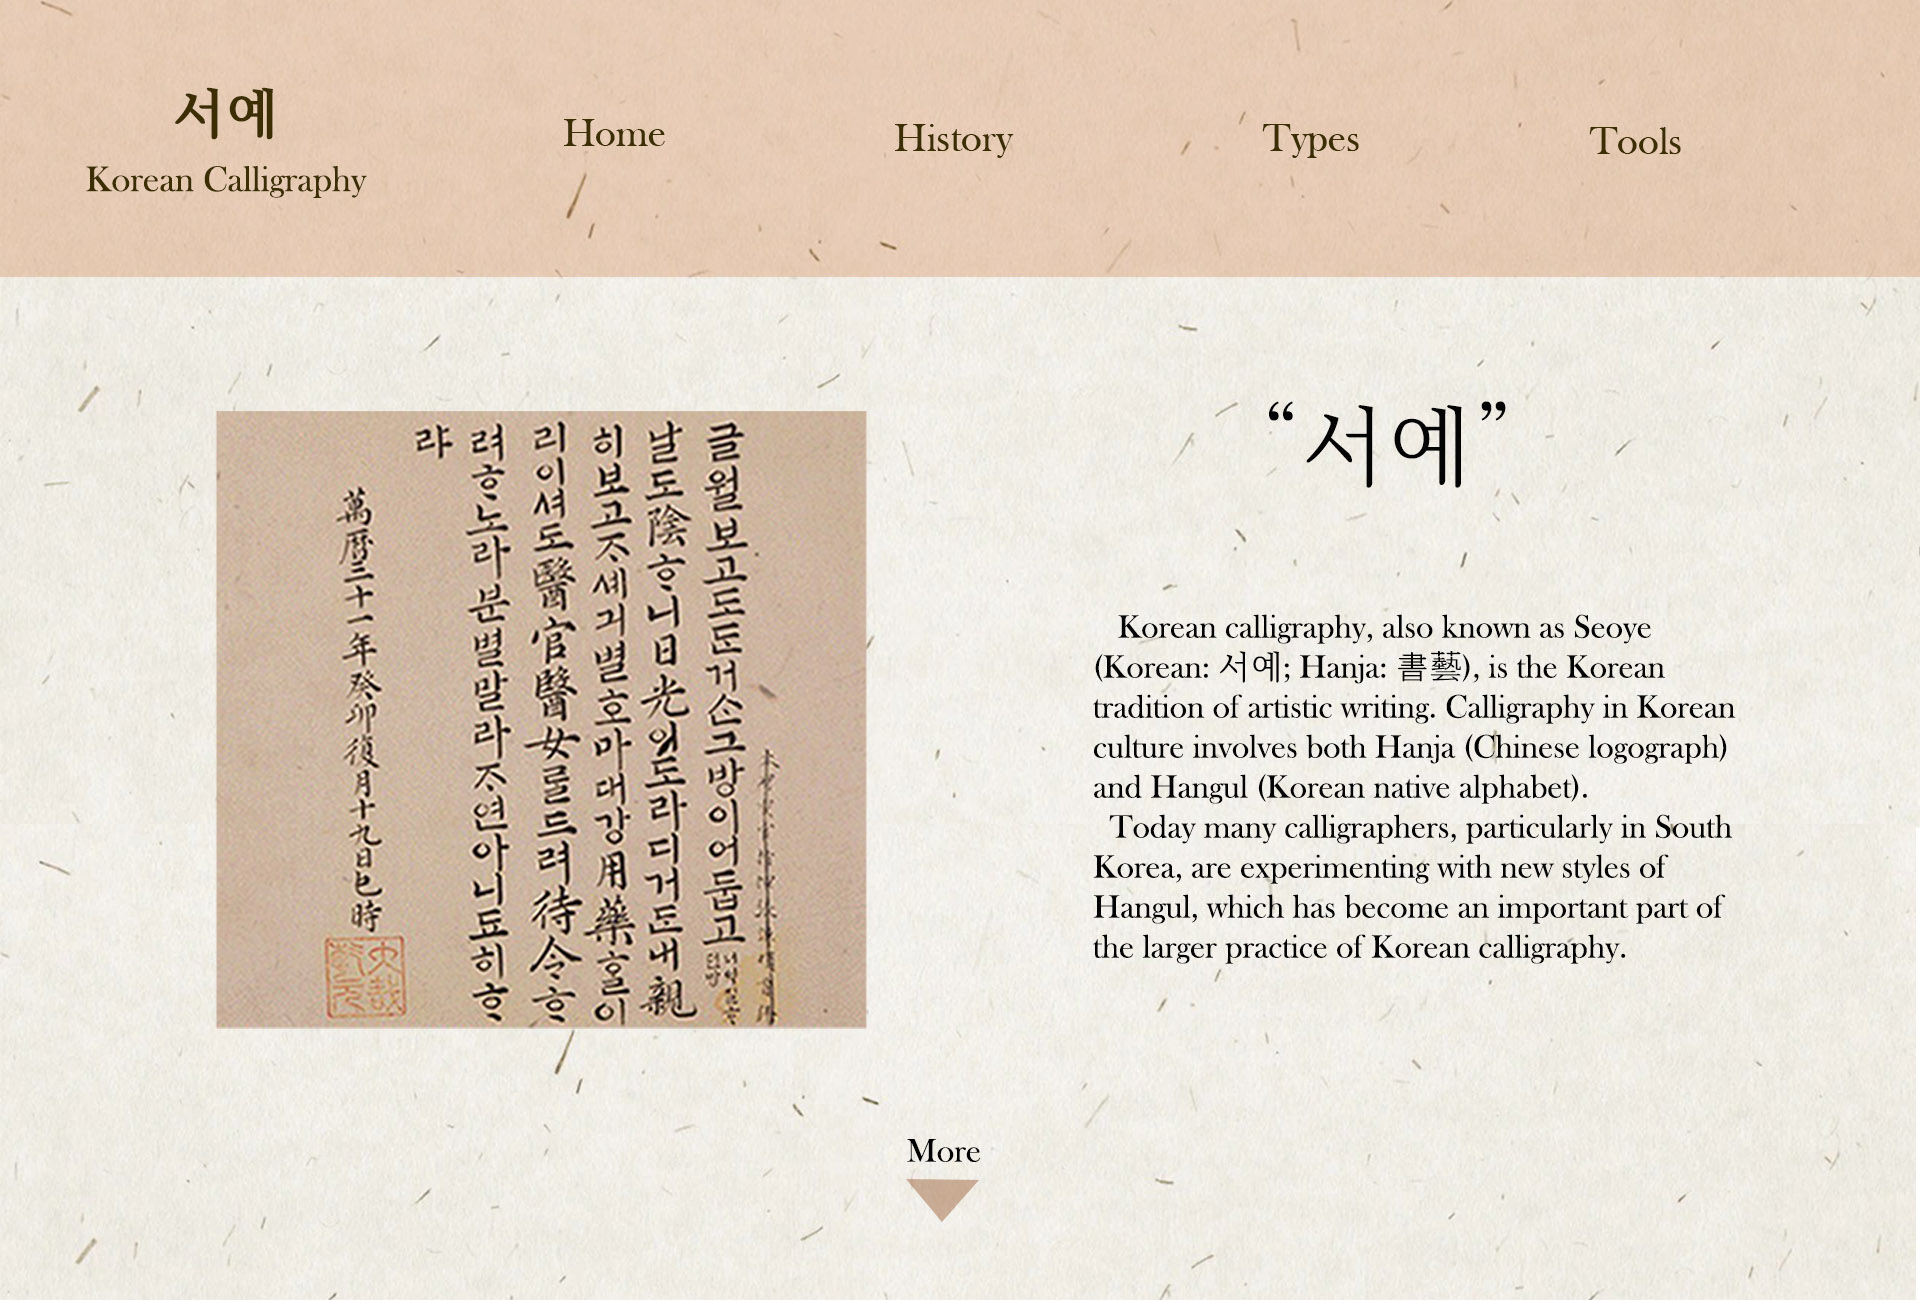 서예
Korean Calligraphy
Home
History
Types
Tools
글월보고도돈거슨그방이어둡고
날도陰ᄒᆞ니日光이도라디거든내親
히보고ᄌᆞ셰긔별호마대강用藥ᄒᆞᆯ이
리이셔도醫官醫女ᄅᆞᆯ드려待令ᄒᆞ
려ᄒᆞ노라분별말라ᄌᆞ연아니됴히ᄒᆞ
랴
萬曆三十一年癸卯復月十九日巳時
“서예”
Korean calligraphy, also known as Seoye
(Korean: 서예; Hanja: 書藝), is the Korean
tradition of artistic writing. Calligraphy in Korean
culture involves both Hanja (Chinese logograph)
and Hangul (Korean native alphabet).
Today many calligraphers, particularly in South
Korea, are experimenting with new styles of
Hangul, which has become an important part of
the larger practice of Korean calligraphy.
More